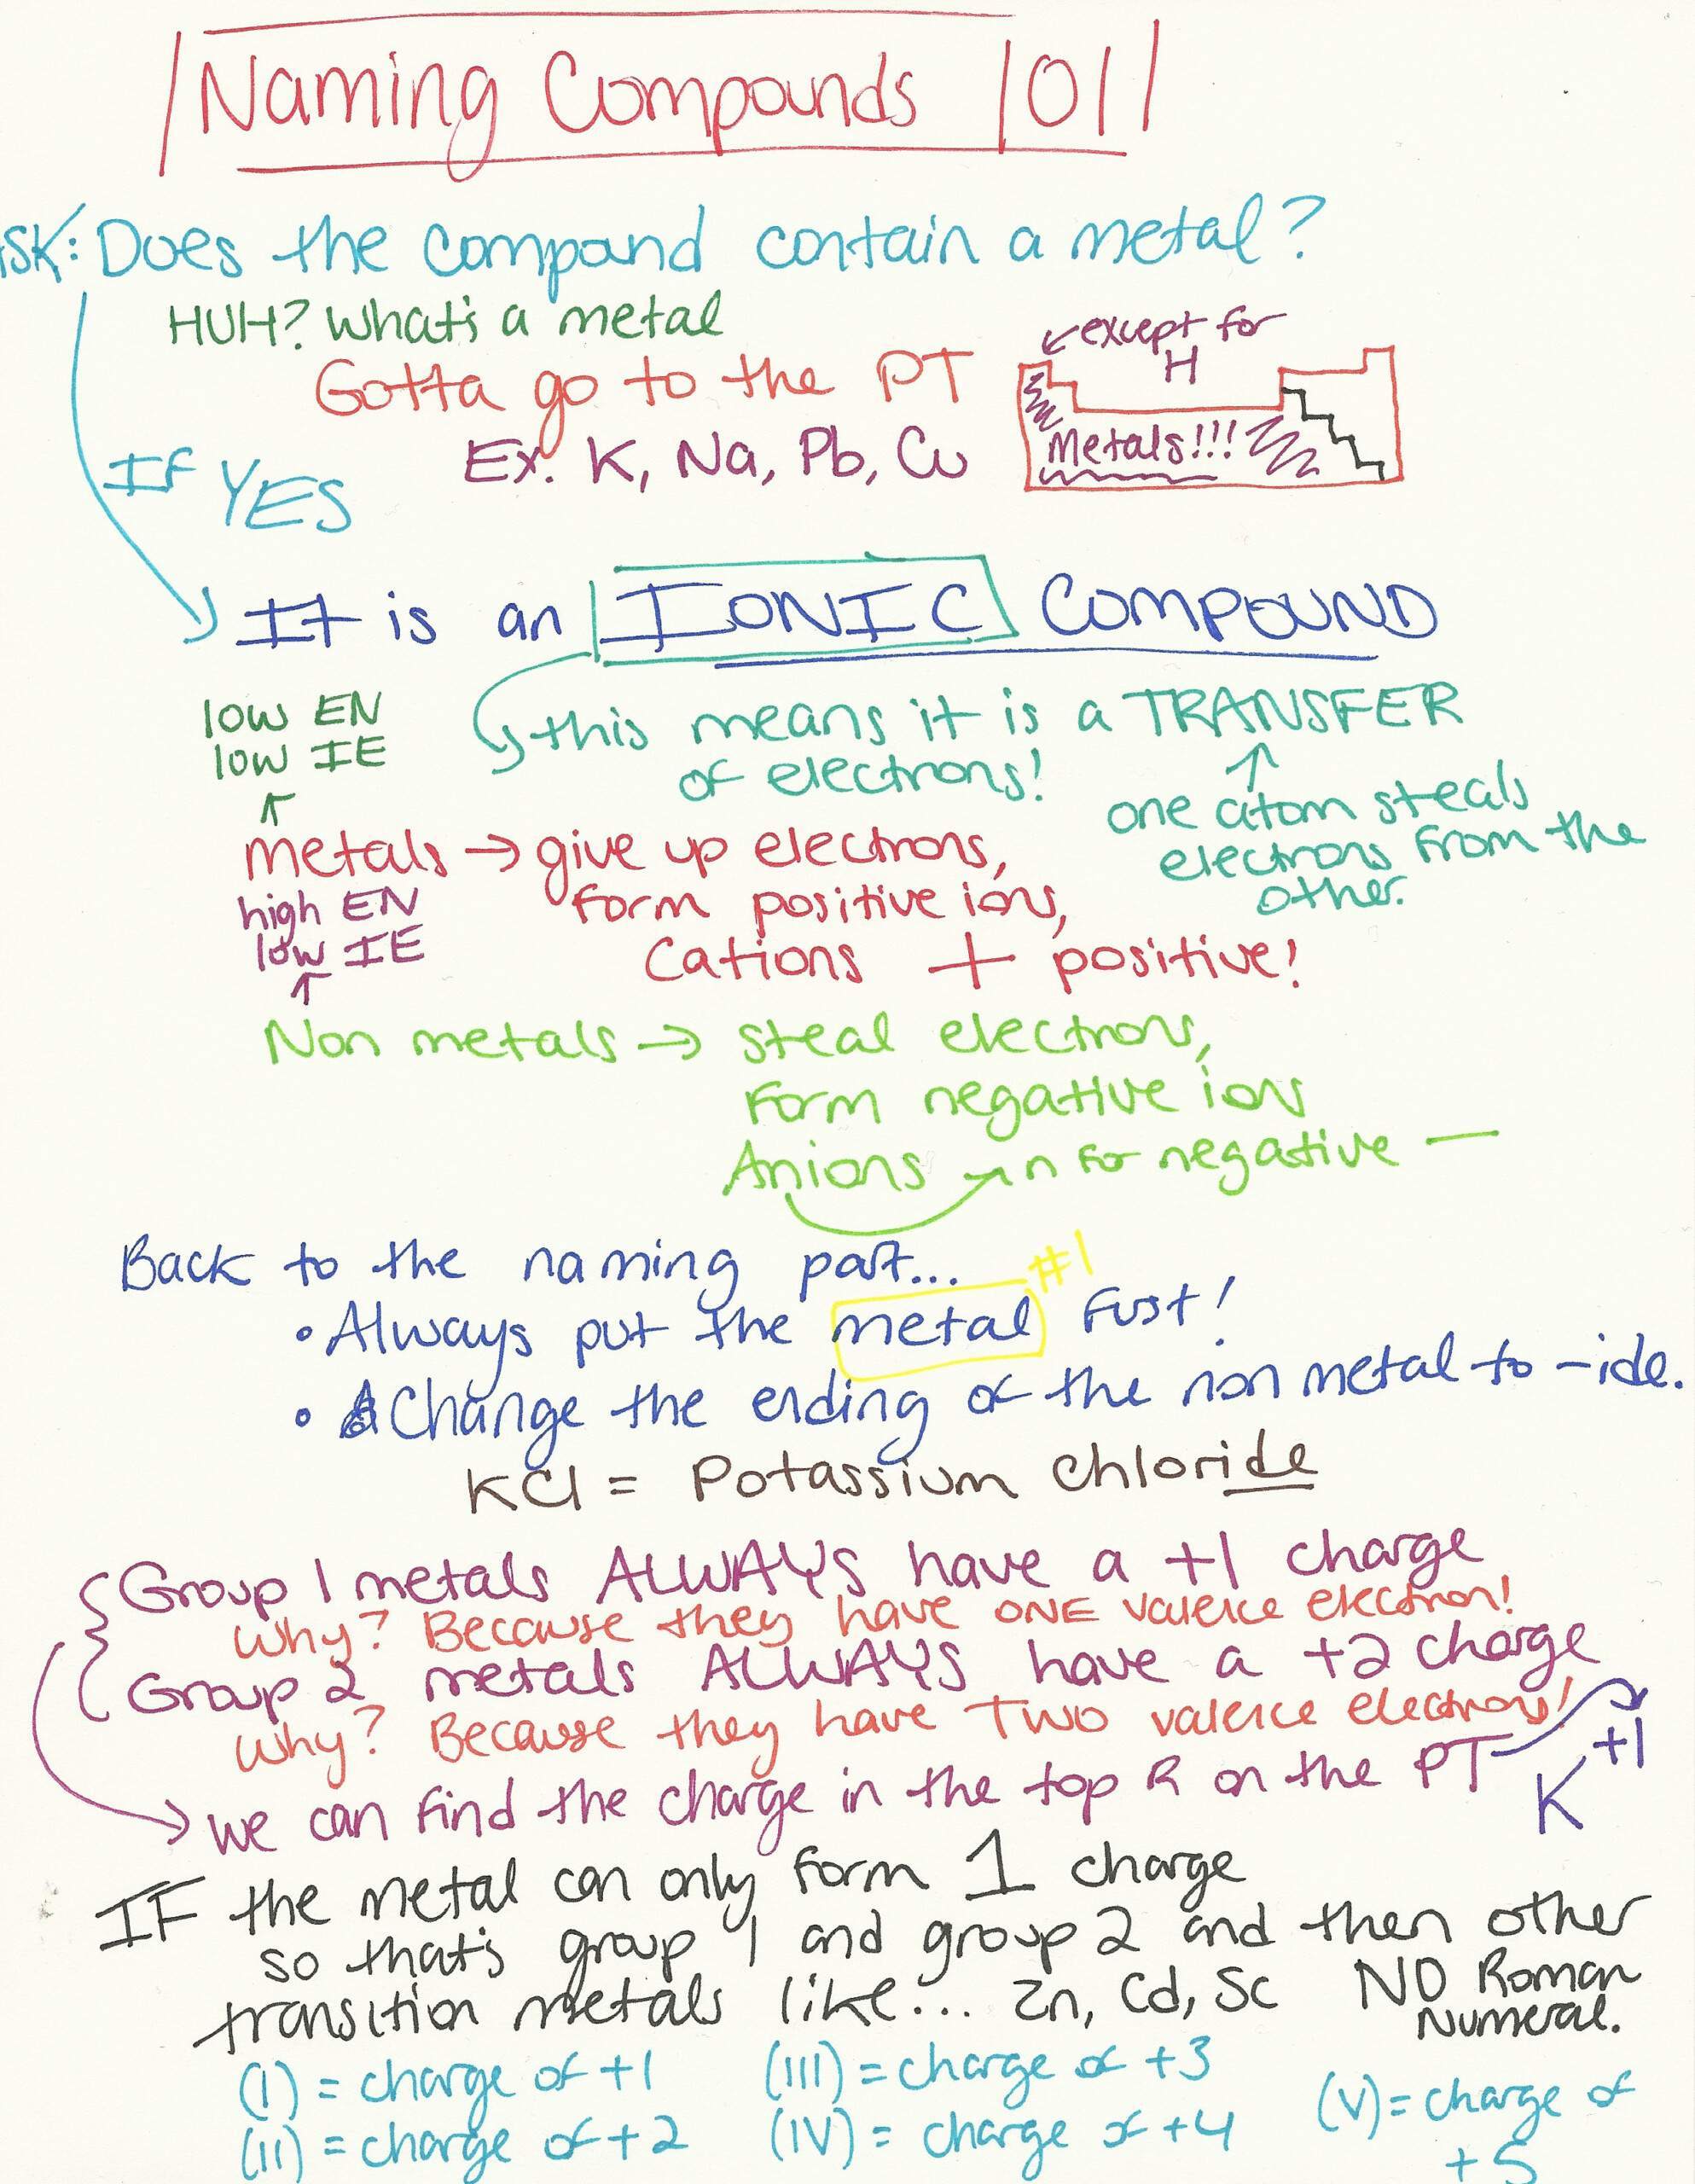 Naming Compounds 101
ASK: Does the compound contain a metal?
HUH? What's a metal
Gotta go to the PT
Ex. K, Na, Pb, Cu
except for
H
Metals!!!
If YES
It is an IONIC COMPOUND
low EN
low IE
this means it is a TRANSFER
of electrons!
one atom steals
electrons from the
other.
metals → give up electrons,
form positive ions,
Cations + positive!
high EN
low IE
Non metals → steal electrons,
Form negative ions
Anions → n for negative —
Back to the naming part...
#1
• Always put the metal first!
• Change the ending of the non metal to -ide.
KCl = Potassium chloride
Group 1 metals ALWAYS have a +1 charge
Why? Because they have ONE valence electron!
Group 2 metals ALWAYS have a +2 charge
Why? Because they have TWO valence electrons!
we can find the charge in the top R on the PT
K+1
IF the metal can only form 1 charge
so that's group 1 and group 2 and then other
transition metals like... Zn, Cd, Sc NO Roman
Numeral.
(I) = charge of +1 (III) = charge of +3
(II) = charge of +2 (IV) = charge of +4
(V) = charge of
+5